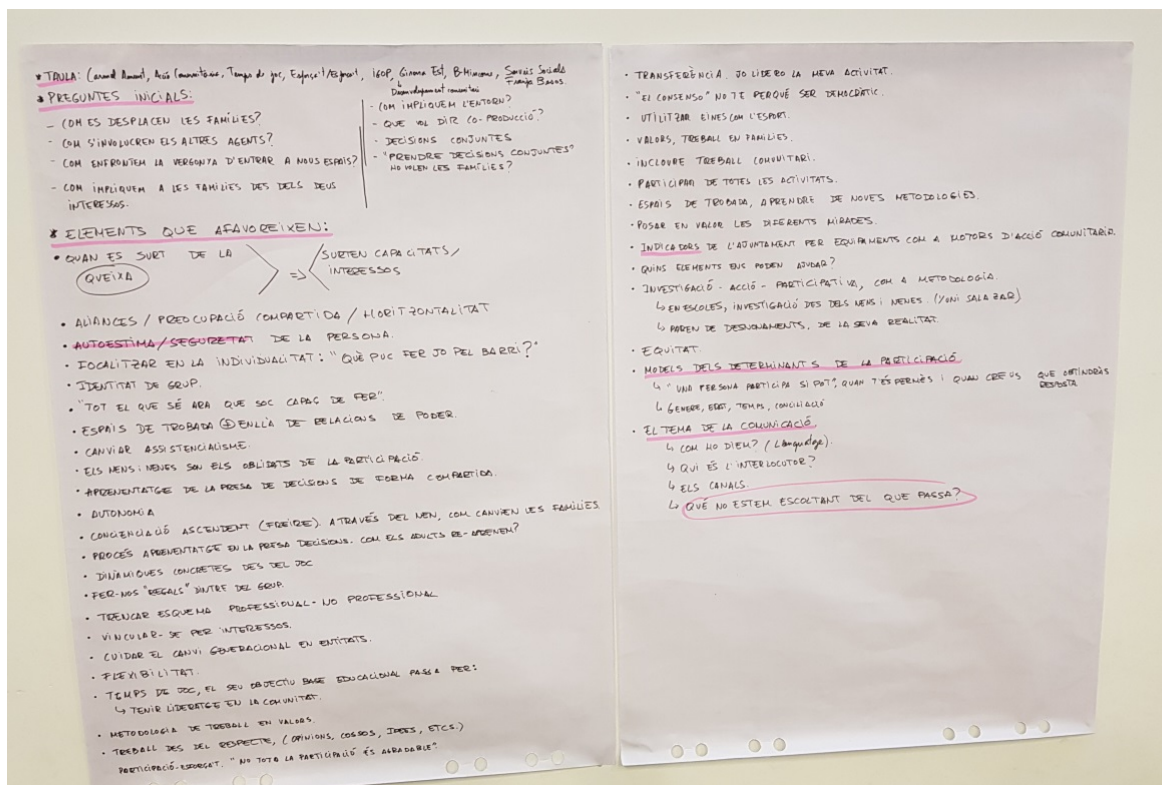 * TAULA: Acció Comunitària, Temps de joc, Espiga't/Espavil, IGOP, Girona Est, B-Mincome, Serveis Socials
Desenvolupament comunitari Franja Besòs.
* PREGUNTES INICIALS:
- COM ES DESPLACEN LES FAMÍLIES?
- COM S'INVOLUCREN ELS ALTRES AGENTS?
- COM ENFRONTEM LA VERGONYA D'ENTRAR A NOUS ESPAIS?
- COM IMPLIQUEM A LES FAMÍLIES DES DELS SEUS
INTERESSOS.
- COM IMPLIQUEM L'ENTORN?
- QUE VOL DIR CO-PRODUCCIÓ?
- DECISIONS CONJUNTES
- "PRENDRE DECISIONS CONJUNTES"
NO VOLEN LES FAMÍLIES?
* ELEMENTS QUE AFAVOREIXEN:
• QUAN ES SURT DE LA
QUEIXA
=> SURTEN CAPACITATS/
INTERESSOS
• ALIANCES / PREOCUPACIÓ COMPARTIDA / HORITZONTALITAT
• AUTOESTIMA/SEGURETAT DE LA PERSONA.
• FOCALITZAR EN LA INDIVIDUALITAT: "QUÈ PUC FER JO PEL BARRI?"
• IDENTITAT DE GRUP.
• "TOT EL QUE SÉ ARA QUE SOC CAPAÇ DE FER".
• ESPAIS DE TROBADA + ENLLÀ DE RELACIONS DE PODER.
• CANVIAR ASSISTENCIALISME.
• ELS NENS i NENES SON ELS OBLIDATS DE LA PARTICIPACIÓ.
• APRENENTATGE DE LA PRESA DE DECISIONS DE FORMA COMPARTIDA.
• AUTONOMIA
• CONCIENCIACIÓ ASCENDENT (FREIRE). A TRAVÉS DEL NEN, COM CANVIEN LES FAMÍLIES.
• PROCÉS APRENENTATGE EN LA PRESA DECISIONS. COM ELS ADULTS RE-APRENEM?
• DINÀMIQUES CONCRETES DES DEL JOC
• FER-NOS "REGALS" DINTRE DEL GRUP.
• TRENCAR ESQUEMA PROFESSIONAL - NO PROFESSIONAL
• VINCULAR-SE PER INTERESSOS.
• CUIDAR EL CANVI GENERACIONAL EN ENTITATS.
• FLEXIBILITAT.
• TEMPS DE JOC, EL SEU OBJECTIU BASE EDUCACIONAL PASSA PER:
↳ TENIR LIDERATGE EN LA COMUNITAT.
• METODOLOGIA DE TREBALL EN VALORS.
• TREBALL DES DEL RESPECTE, (OPINIONS, COSSOS, IDEES, ETCS.)
PARTICIPACIÓ-ESFORÇAT. "NO TOTA LA PARTICIPACIÓ ÉS AGRADABLE".
• TRANSFERÈNCIA. JO LIDERO LA MEVA ACTIVITAT.
• "EL CONSENSO" NO TE PERQUÈ SER DEMOCRÀTIC.
• UTILITZAR EINES COM L'ESPORT.
• VALORS, TREBALL EN FAMÍLIES.
• INCLOURE TREBALL COMUNITARI.
• PARTICIPAR DE TOTES LES ACTIVITATS.
• ESPAIS DE TROBADA, APRENDRE DE NOVES METODOLOGIES.
• POSAR EN VALOR LES DIFERENTS MIRADES.
• INDICADORS DE L'AJUNTAMENT PER EQUIPAMENTS COM A MOTORS D'ACCIÓ COMUNITÀRIA.
• QUINS ELEMENTS ENS PODEN AJUDAR?
• INVESTIGACIÓ - ACCIÓ - PARTICIPATIVA, COM A METODOLOGIA
↳ EN ESCOLES, INVESTIGACIÓ DES DELS NENS i NENES. (YUNI SALAZAR)
↳ DE LA SEVA REALITAT.
• EQUITAT.
• MODELS DELS DETERMINANTS DE LA PARTICIPACIÓ
↳ "UNA PERSONA PARTICIPA SI POT", QUAN T'ÉS PERMÈS i QUAN CREUS QUE OBTINDRÀS
RESPOSTA
↳ GENERE, EDAT, TEMPS, CONCILIACIÓ
• EL TEMA DE LA COMUNICACIÓ.
↳ COM HO DIEM? (Llenguatge).
↳ QUI ÉS L'INTERLOCUTOR?
↳ ELS CANALS.
↳ QUÈ NO ESTEM ESCOLTANT DEL QUE PASSA?